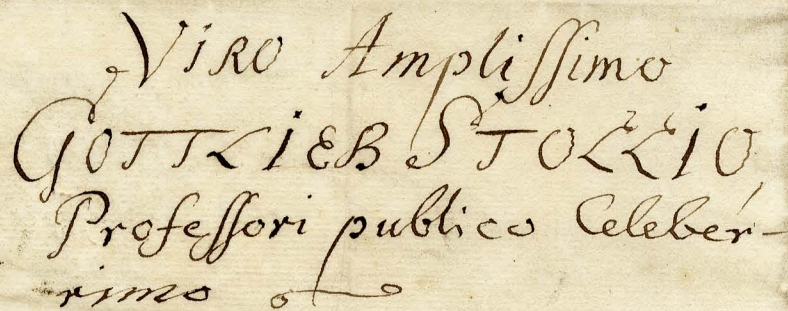 VIRO Amplissimo
GOTTLIEB STOLLIO,
Professori publico Celebér-
rimo